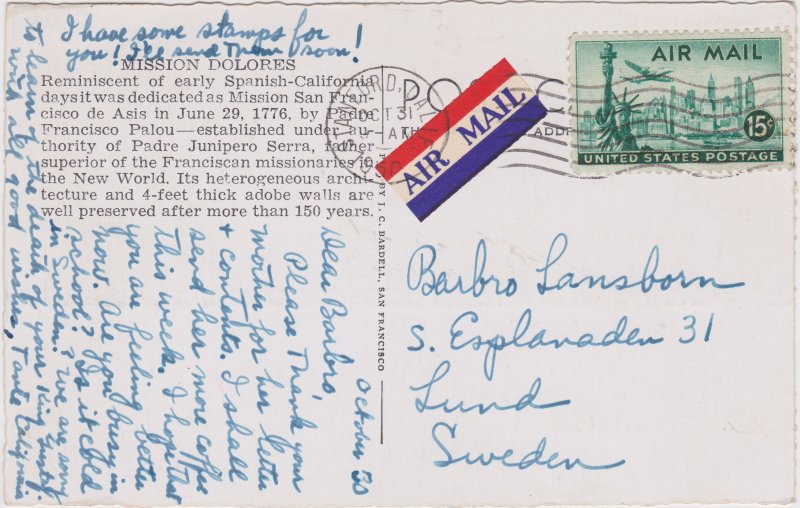 I have some stamps for
you! I'll send them soon!
MISSION DOLORES
Reminiscent of early Spanish-California
days it was dedicated as Mission San Fran-
cisco de Asis in June 29, 1776, by Padre
Francisco Palou—established under au-
thority of Padre Junipero Serra, father
superior of the Franciscan missionaries in
the New World. Its heterogeneous archi-
tecture and 4-feet thick adobe walls are
well preserved after more than 150 years.
October 30
Dear Barbro,
Please thank your
mother for her letter
& contents. I shall
send her more coffee
this week. I hope that
you are feeling better
now. Are you busy in
school? Is it cold
in Sweden? We are sorry
to learn of the death of your King Gustaf.
with all good wishes, Tante California
PUB. BY J. C. BARDELL, SAN FRANCISCO
STANFORD, CALIF.
OCT 31
AM
1950
AIR MAIL
AIR MAIL
15¢
UNITED STATES POSTAGE
Barbro Lansborn
S. Esplanaden 31
Lund
Sweden